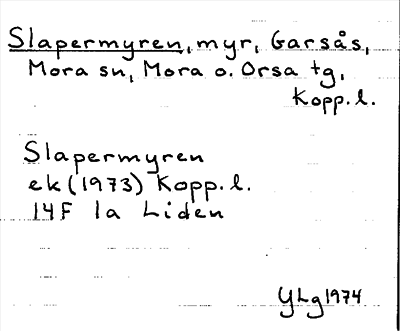 Slapermyren, myr, Garsås,
Mora sn, Mora o. Orsa tg,
Kopp. l.
Slapermyren
ek (1973) Kopp. l.
14F 1a Liden
YLg 1974